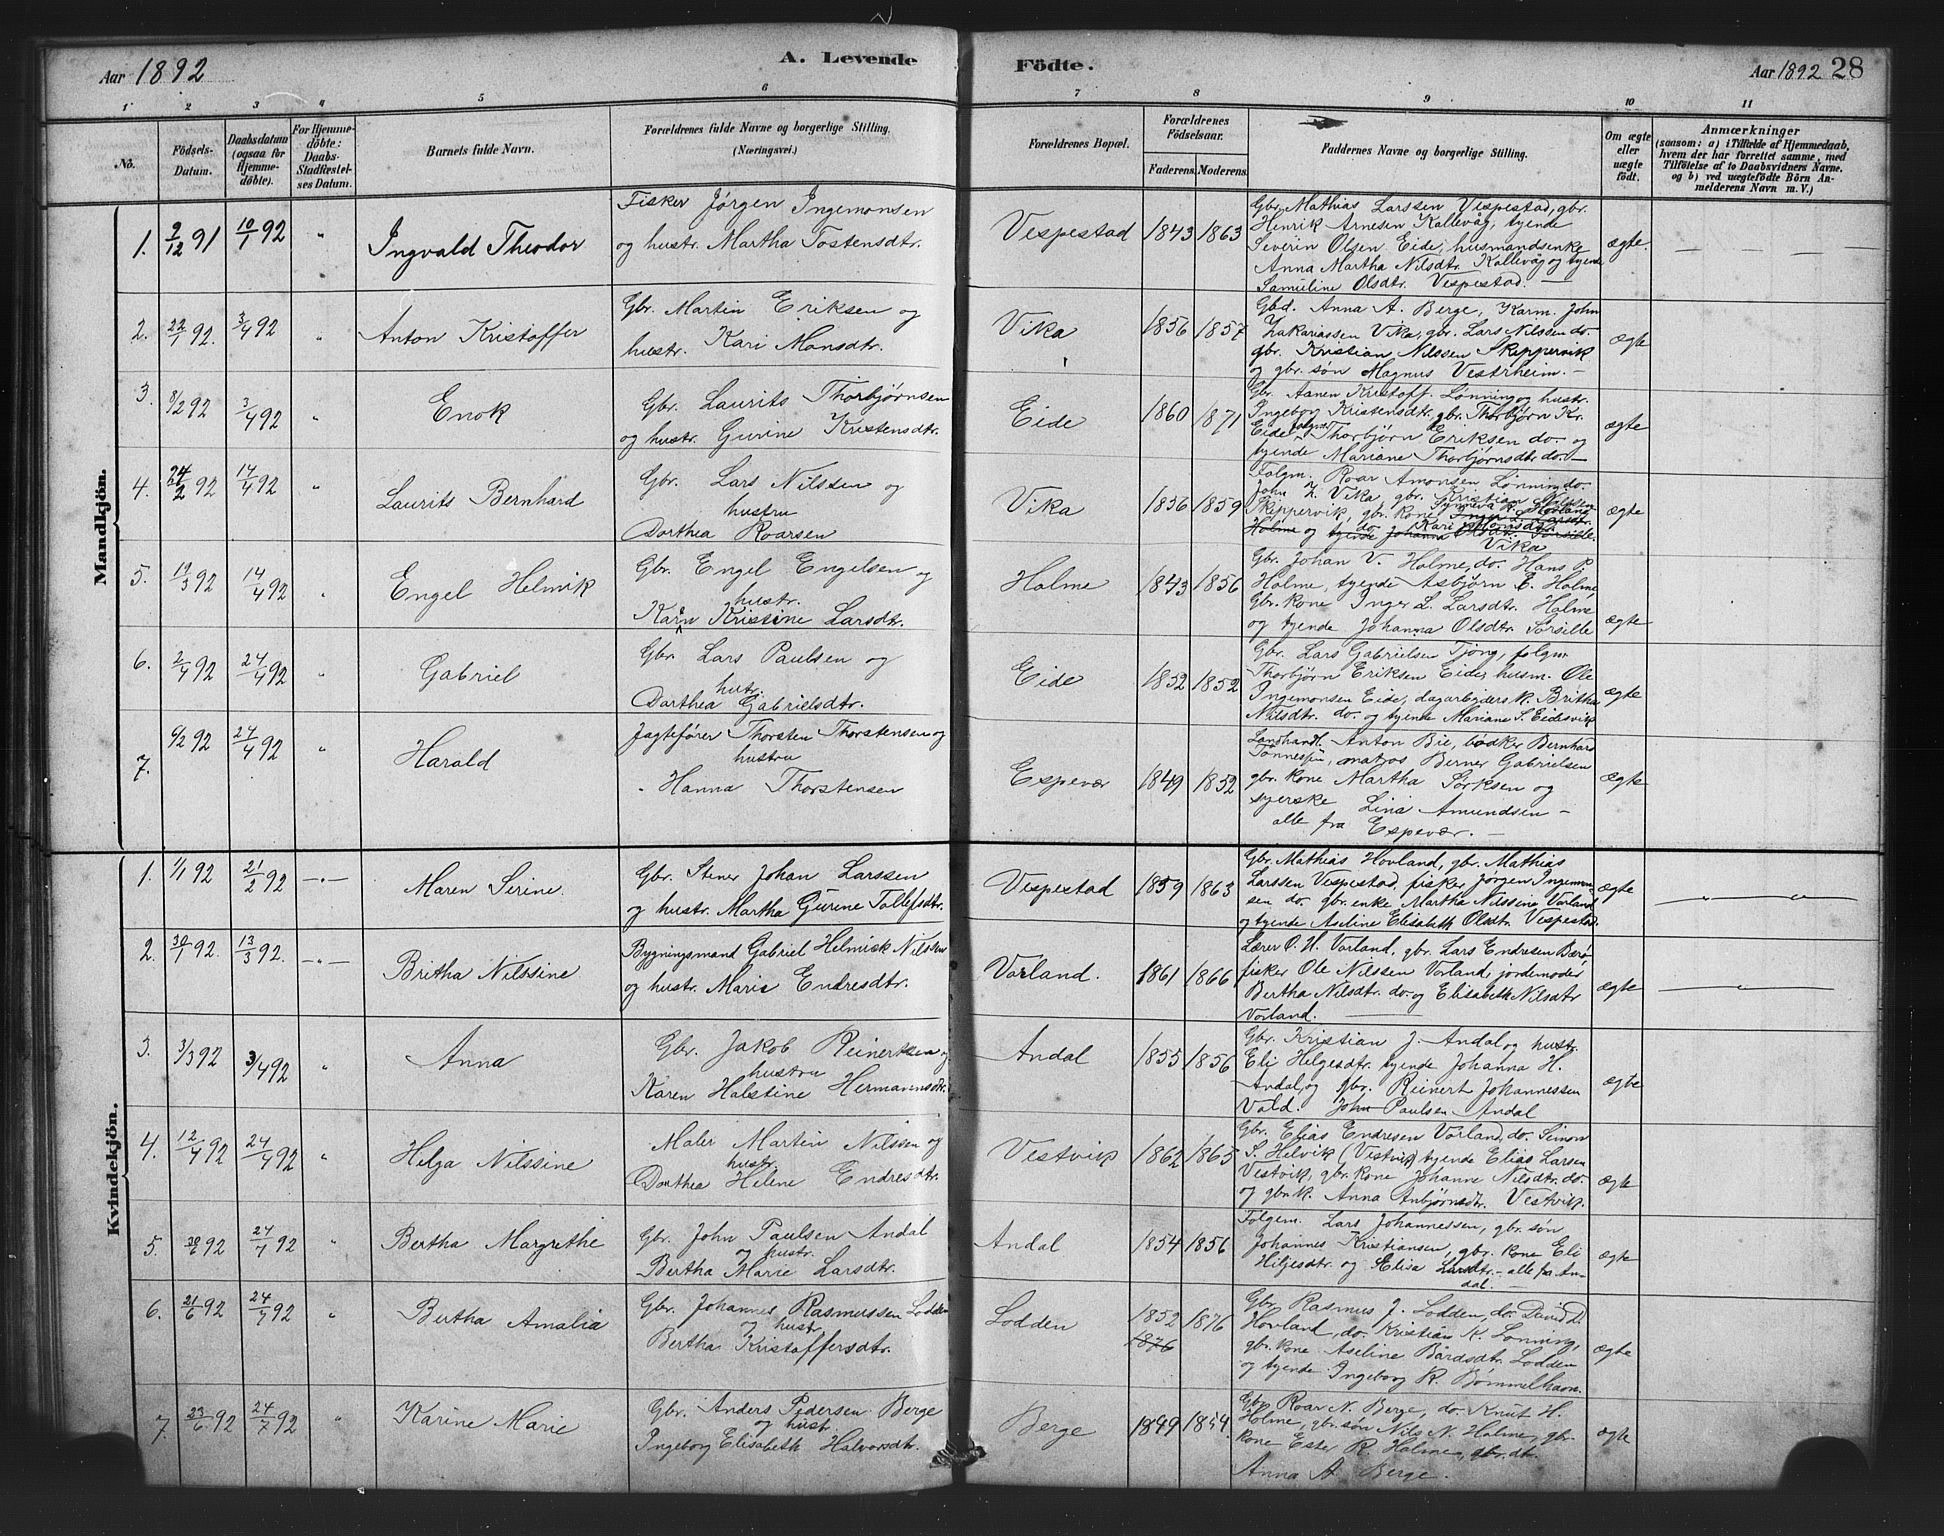 Aar 1892
A. Levende
Födte.
Aar 1892 28
1 2 3 4 5 6 7 8 9 10 11
No.
Födsels-
Datum.
Daabsdatum
(ogsaa for
Hjemme-
döbte).
For Hjemme-
döbte:
Daabs-
Stadfæstel-
ses Datum.
Barnets fulde Navn.
Forældrenes fulde Navne og borgerlige Stilling.
(Næringsvei.)
Forældrenes Bopæl.
Forældrenes
Födselsaar.
Faderens. Moderens.
Faddernes Navne og borgerlige Stilling.
Om ægte
eller
uægte
födt.
Anmærkninger
(saasom: a) i Tilfælde af Hjemmedaab,
hvem der har forrettet samme, med
Tilföielse af to Daabsvidners Navne.
og b) ved uægtefödte Börn An-
melderens Navn m. V.)
Mandkjön.
1. 9/12 91 10/1 92 " Ingvald Theodor
Fisker Jørgen Ingemonsen
og hustr. Martha Tostensdtr.
Vespestad 1843 1863
Gbr. Mathias Larssen Vespestad, gbr.
Henrik Arnesen Kallevåg, tyende
Severin Olsen Eide, husmandsenke
Anna Martha Nilsdtr. Kallevåg og tyende
Samueline Olsdtr. Vespestad. —
ægte. — — —
2. 22/1 92. 3/4 92 " Anton Kristoffer
Gbr. Martin Eriksen og
hustr. Kari Monsdtr.
Vika 1856 1857
Gbd. Anna A. Berge, Karm. John
Zakariassen Vika, gbr. Lars Nilssen do.
gbr. Kristian Nilssen Skippervik
og gbr. søn Magnus Vestrheim. —
ægte
3. 8/2 92 3/4 92 " Enok
Gbr. Laurits Thorbjørnsen
og hustr. Gurine Kristensdtr.
Eide 1860 1871
Gbr. Aanen Kristoff. Lønning og hustr.
Ingeborg Kristensdtr, gbr. Thorbjørn Kr.
Eide folgm. Thorbjørn Eriksen do. og
tyende Mariane Thorbjørnsdtr do. —
ægte
4. 24/2 92 14/4 92 " Laurits Bernhard
Gbr. Lars Nilssen og
hustru
Dorthea Roarsen
Vika 1856 1859
Folgm. Roar Amonsen Lønning do.
John Z. Vika, gbr. Kristian Nilssen
Skippervik, gbr. kone Synneva R. Hovland
Holme og do. Kari Monsdtr.
Vika
ægte
5. 19/3 92 14/4 92 " Engel Helmik
Gbr. Engel Engelsen og
hustr.
Karn Kristine Larsdtr.
Holme 1843 1856
Gbr. Johan V. Holme, do. Hans P.
Holme, tyende Asbjørn E. Holme,
Gbr. kone Inger L. Larsdtr. Holme
og tyende Johanna Olsdtr. Sørsille
ægte
6. 2/4 92 24/4 92 " Gabriel
Gbr. Lars Paulsen og
hutr.
Dorthea Gabrielsdtr.
Eide 1852 1852
Gbr. Lars Gabrielsen Tjong, folgm
Thorbjørn Eriksen Eide, husm. Ole
Ingemonsen Eide, dagarbeiders k. Britha
Nilsdtr. do. og tyende Mariane S. Eidesvik
ægte
7. 6/2 92 24/4 92 " Harald
Jagtefører Thorsten Thorstensen og
hustru
Hanna Thorstensen
Espevær 1849 1852
Landhandl. Anton Bie, bødker Bernhard
Tønnesen, matros Berner Gabrielsen
gbr. kone Martha Sørksen og
syerske Lina Amundsen —
alle fra Espevær. —
ægte
Kvindekjön.
1. 1/1 92 21/2 92 — " — Maren Serine
Gbr. Stener Johan Larssen
og hustr. Martha Gurine Tollefsdtr.
Vespestad 1859 1863
Gbr. Mathias Hovland, gbr. Mathias
Larssen Vespestad, fisker Jørgen Ingemon-
sen do. gbr. enke Martha Nilssine Vorland
og tyende Aseline Elisabeth Olsdtr. Vespestad.
ægte — " —
2. 30/1 92. 13/3 92. — " — Britha Nilssine
Bygningsmand Gabriel Helmick Nilssen
og hustr. Marie Endresdtr.
Vorland. 1861 1866
Lærer O. N. Vorland, gbr. Lars Endresen Børø,
fisker Ole Nilssen Vorland, jordemoder
Bertha Nilsdtr. do. og Elisabeth Nilsdtr
Vorland. —
ægte — " —
3. 3/3 92 3/4 92 " Anna
Gbr. Jakob Reinertsen og
hustru
Karen Halstine Hermannsdtr.
Andal 1855 1856
Gbr. Kristian J. Andal og hustr.
Eli Helgesdtr. tyende Johanna H.
Andal, og gbr. Reinert Johannessen
Vold. John Paulsen Andal
ægte
4. 12/4 92 24/4 92 " Helga Nilssine
Maler Martin Nilssen og
hustr.
Dorthea Helene Endresdtr.
Vestvik 1862 1865
Gbr. Elias Endresen Vorland, do. Simon
S. Helvik (Vestvik) tyende Elias Larsen
Vestvik, gbr. kone Johanne Nilsdtr. do.
og gbr k. Anna Anbjørnsdtr. Vestvik.
ægte
5. 92 24/7 92 " Bertha Margrethe
Gbr. John Paulsen Andal
og hustr.
Bertha Marie Larsdtr.
Andal 1854 1856
Folgem. Lars Johannessen, gbr. søn
Johannes Kristiansen, gbr. kone Eli
Hilgesdtr. og Elisa Larsdtr. — alle fra An-
dal.
ægte
6. 21/6 92 24/7 92 " Bertha Amalia
Gbr. Johannes Rasmussen Lodden
og hustr.
Bertha Kristoffersdtr.
Lodden 1852 1876
1876
Gbr. Rasmus J. Lodden, do. David D.
Hovland, do. Kristian K. Lønning,
gbr. kone Aseline Bårdsdtr. Lodden
og tyende Ingeborg R. Bømmelhavn.
ægte
7. 23/6 92 24/7 92 " Karine Marie
Gbr. Anders Pedersen Berge
og hustr.
Ingeborg Elisabeth Halvorsdtr.
Berge 1849 1854
Gbr. Roar N. Berge, do. Knut H.
Holme, gbr. søn Nils N. Holme, gbr.
kone Ester R. Holme, gbr. dtr.
Anna A. Berge.
ægte